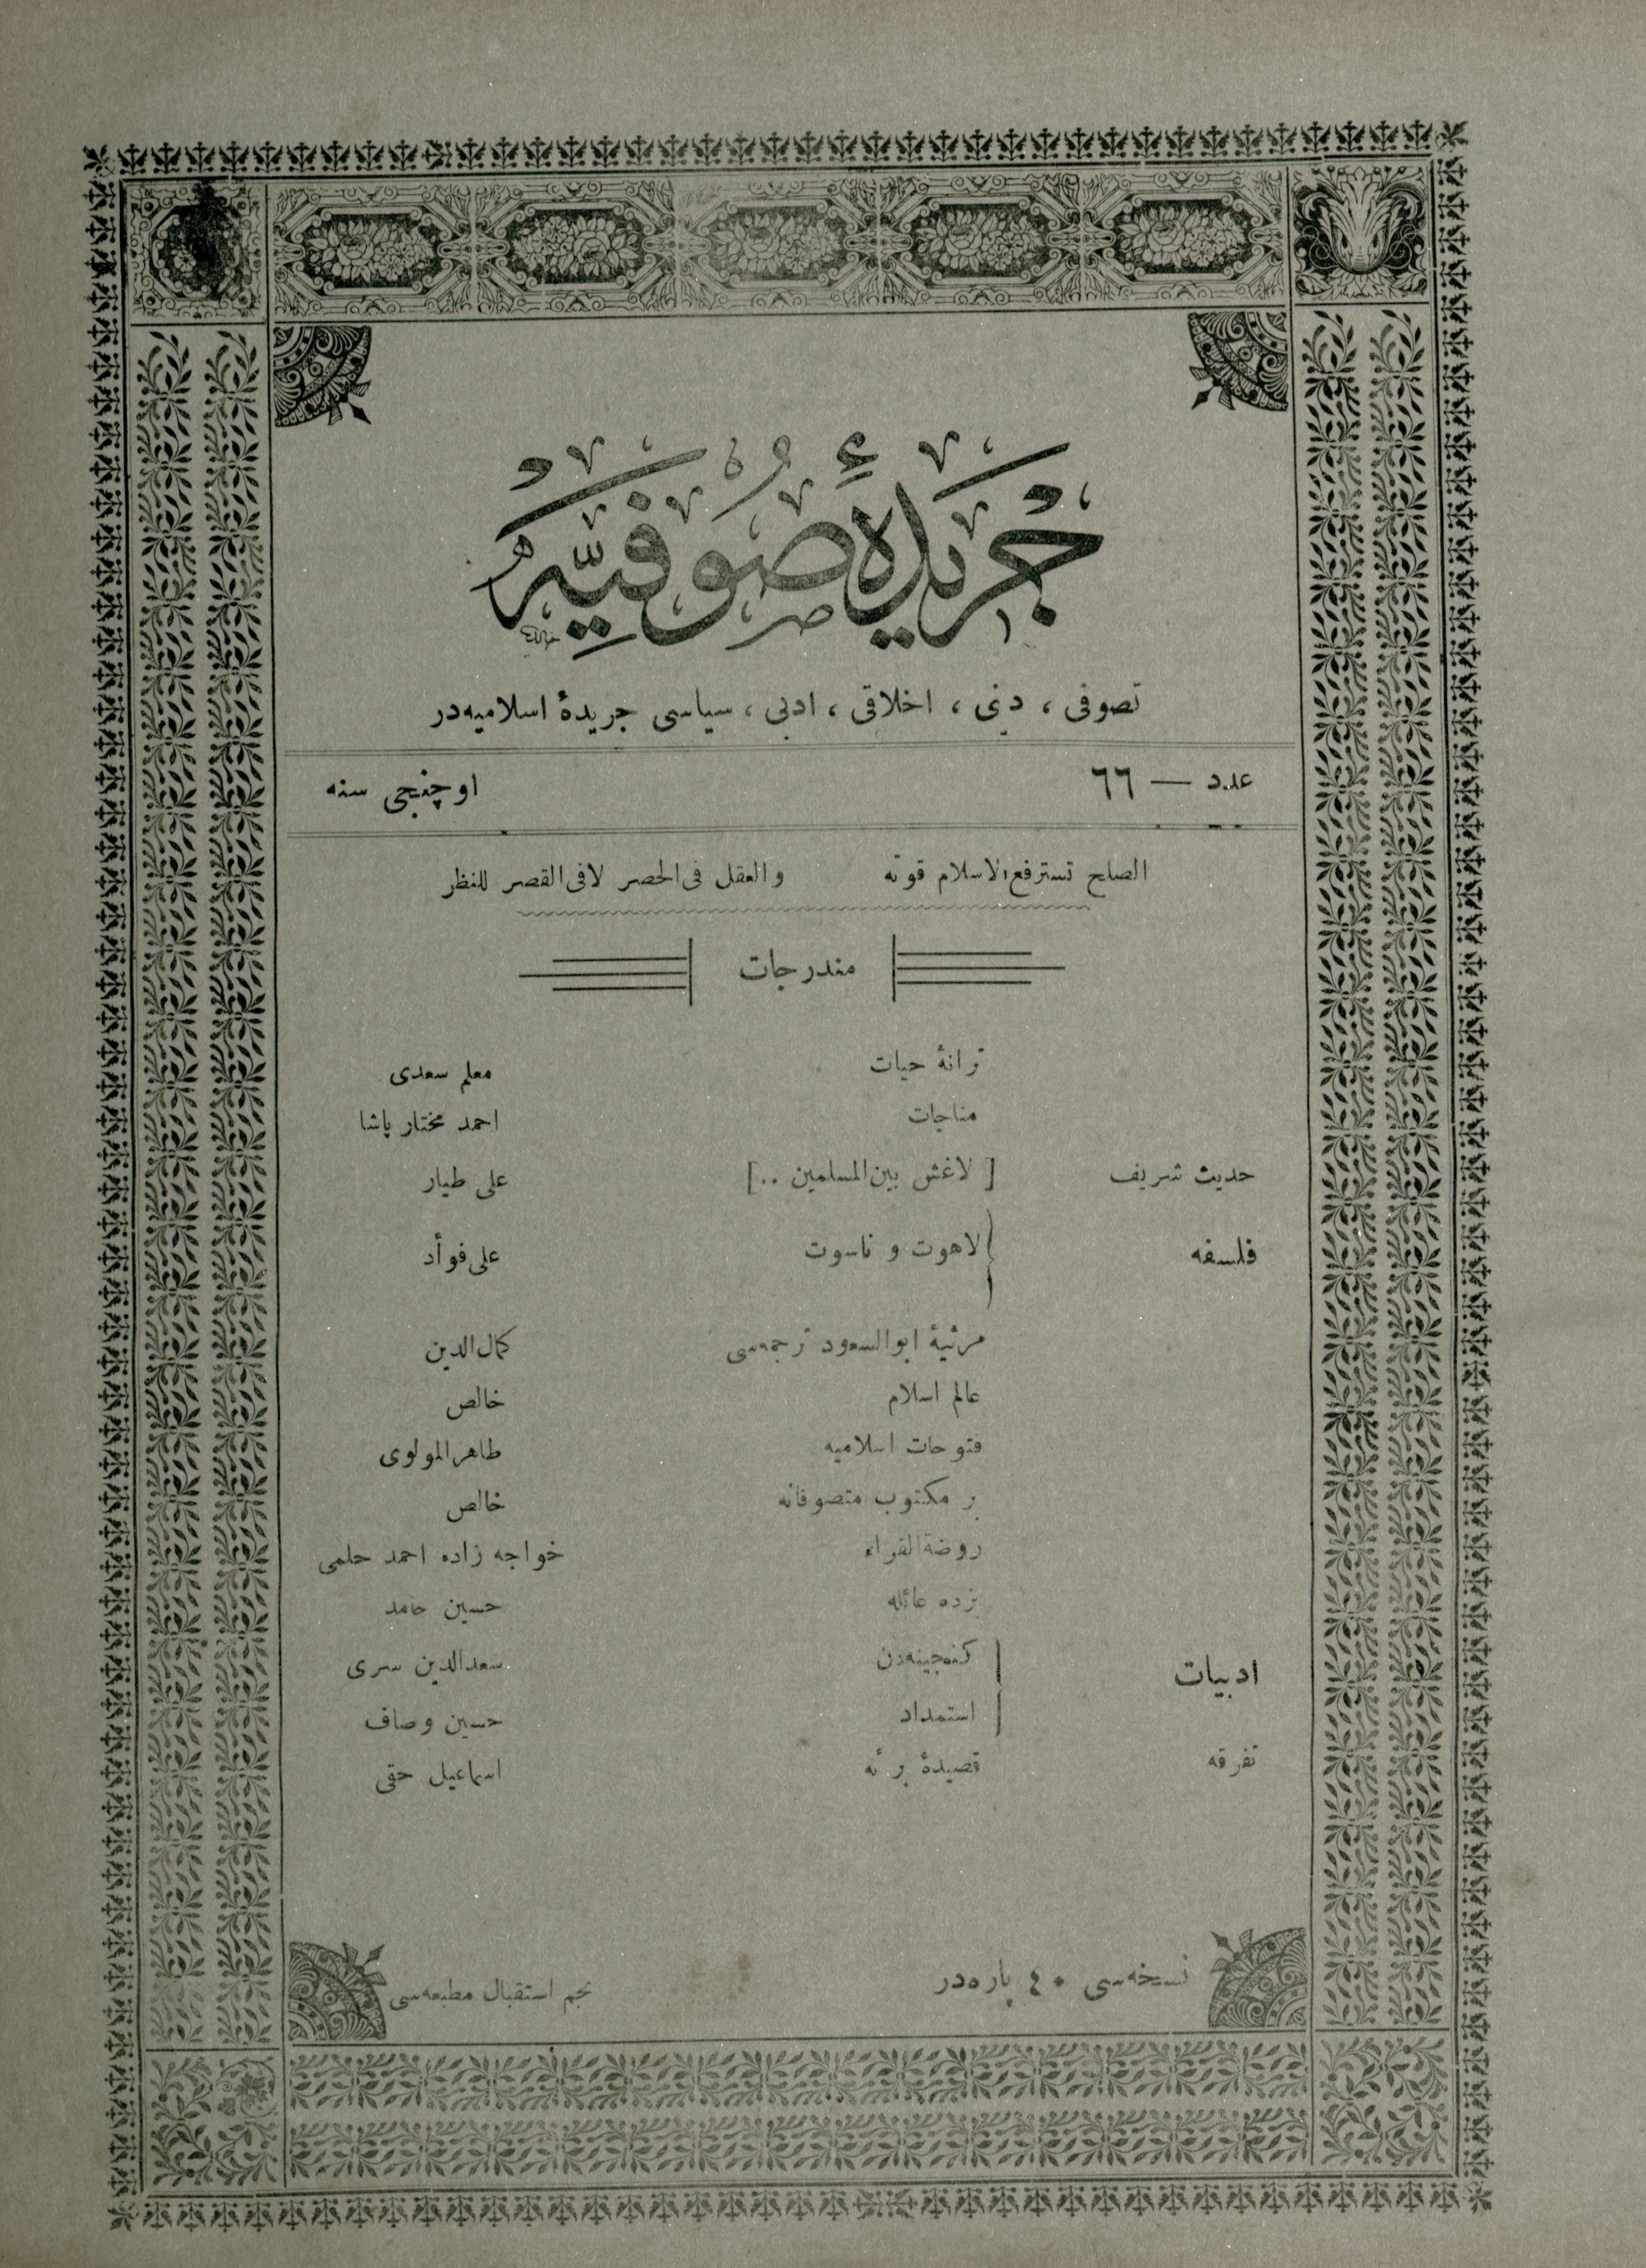 جريدۀ صوفيه
تصوفى ، دينى ، اخلاقى ، ادبى ، سياسى جريدۀ اسلاميه‌در
عدد — ٦٦ اوچنجى سنه
الصلح تسترفع الاسلام قوته والعقل فى الحصر لا فى القصر للنظر
مندرجات
ترانۀ حيات معلم سعدى
مناجات احمد مختار پاشا
حديث شريف [ لاغش بين المسلمين ..] على طيار
فلسفه لاهوت و ناسوت على فوأد
مرثيۀ ابوالسعود ترجمه‌سى كمال الدين
عالم اسلام خالص
فتوحات اسلاميه طاهر المولوى
بر مكتوب متصوفانه خالص
روضة القراء خواجه زاده احمد حلمى
بزده عائله حسين حامد
ادبيات كنجينه‌دن سعدالدين سرى
استمداد حسين وصاف
تفرقه قصيدۀ برئه اسماعيل حقى
نسخه‌سى ٤٠ پاره‌در نجم استقبال مطبعه‌سى